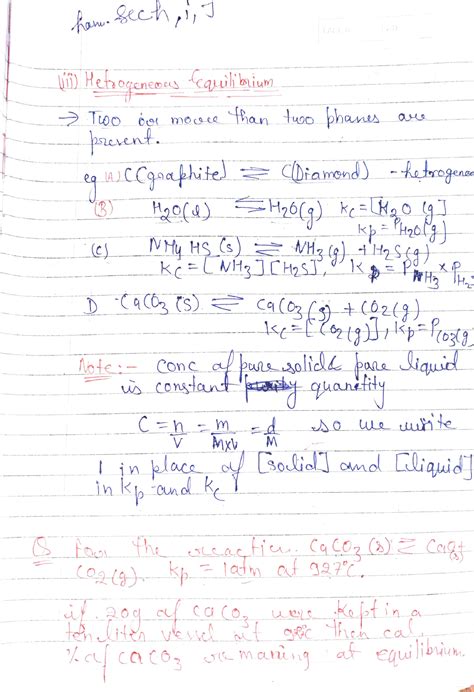 ham. Sec h, i, J
(iii) Hetrogeneous Equilibrium
→ Two or more than two phases are
present.
eg (A) C(graphite) ⇌ C(Diamond) - hetrogeneo
(B) H2O(l) ⇌ H2O(g) Kc = [H2O (g]
Kp = PH2O(g)
(C) NH4 HS (s) ⇌ NH3(g) + H2S(g)
Kc = [NH3][H2S], Kp = PNH3 × PH2
D CaCO3 (s) ⇌ CaCO3 (s) + CO2(g)
Kc = [CO2(g)], Kp = PCO3(g
Note:- Conc of pure solid & pure liquid
is constant quantity
C = n/V = m/M×V = d/M so we write
1 in place of [solid] and [liquid]
in Kp and Kc
Q for the reaction CaCO3 (s) ⇌ CaO(s) +
CO2(g). Kp = 1atm at 927°C.
if 20g of CaCO3 were kept in a
ten liter vessel at then cal.
% of CaCO3 remaning at equilibrium.